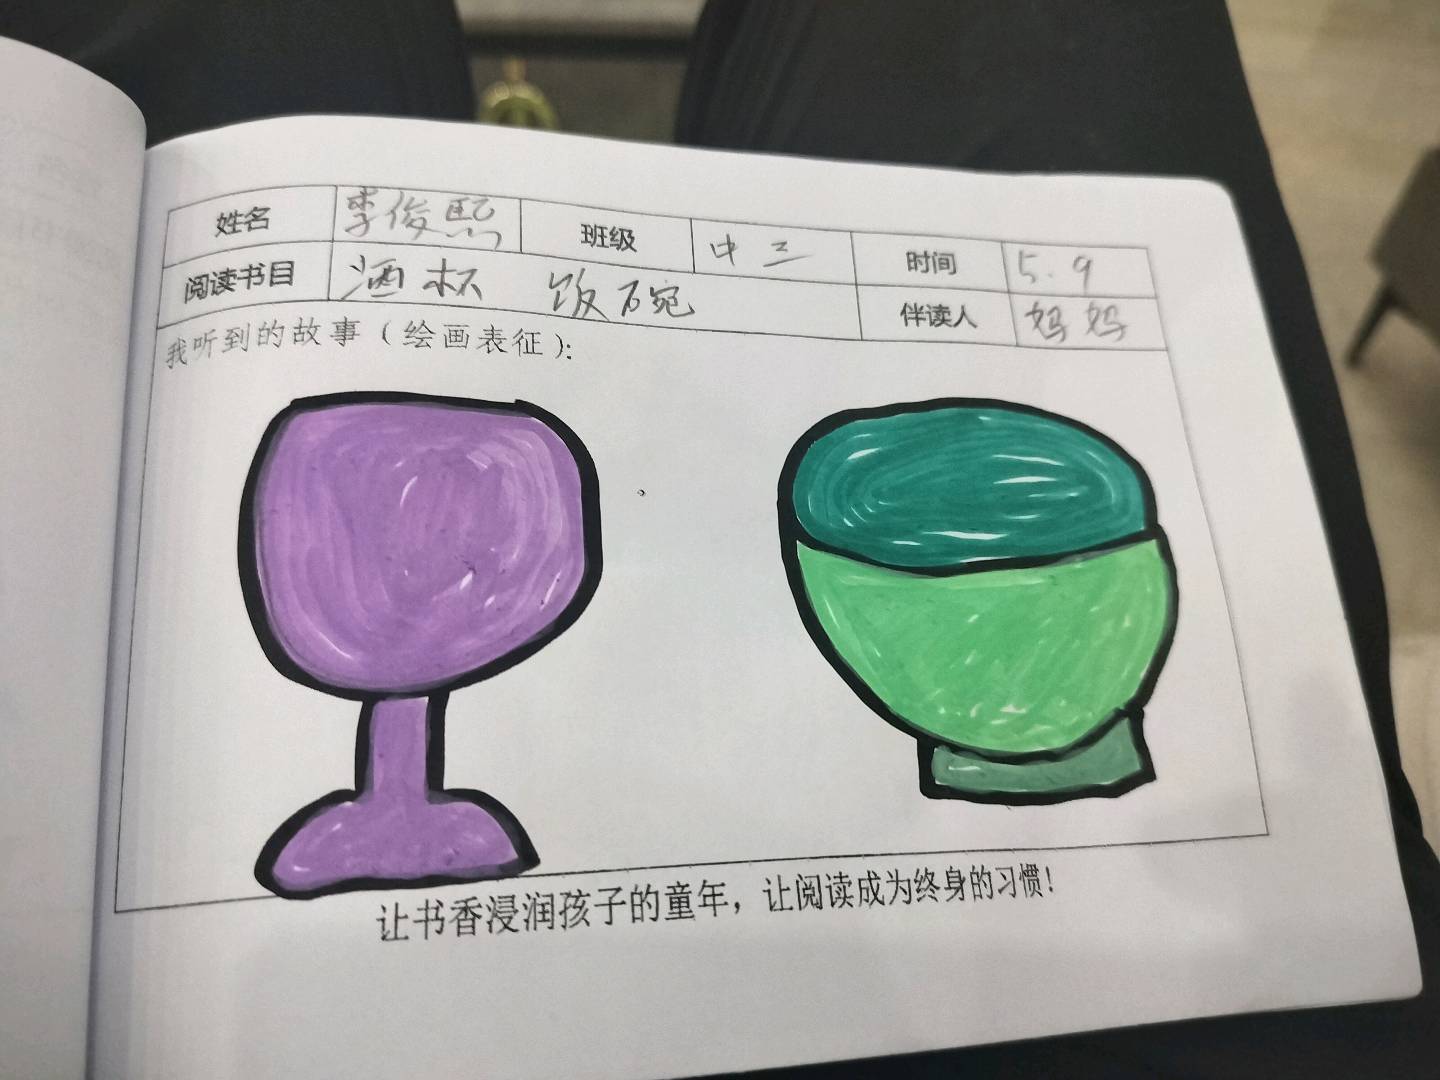 姓名 李俊熙 班级 中三 时间 5.9
阅读书目 酒杯 饭碗 伴读人 妈妈
我听到的故事（绘画表征）：
让书香浸润孩子的童年，让阅读成为终身的习惯！